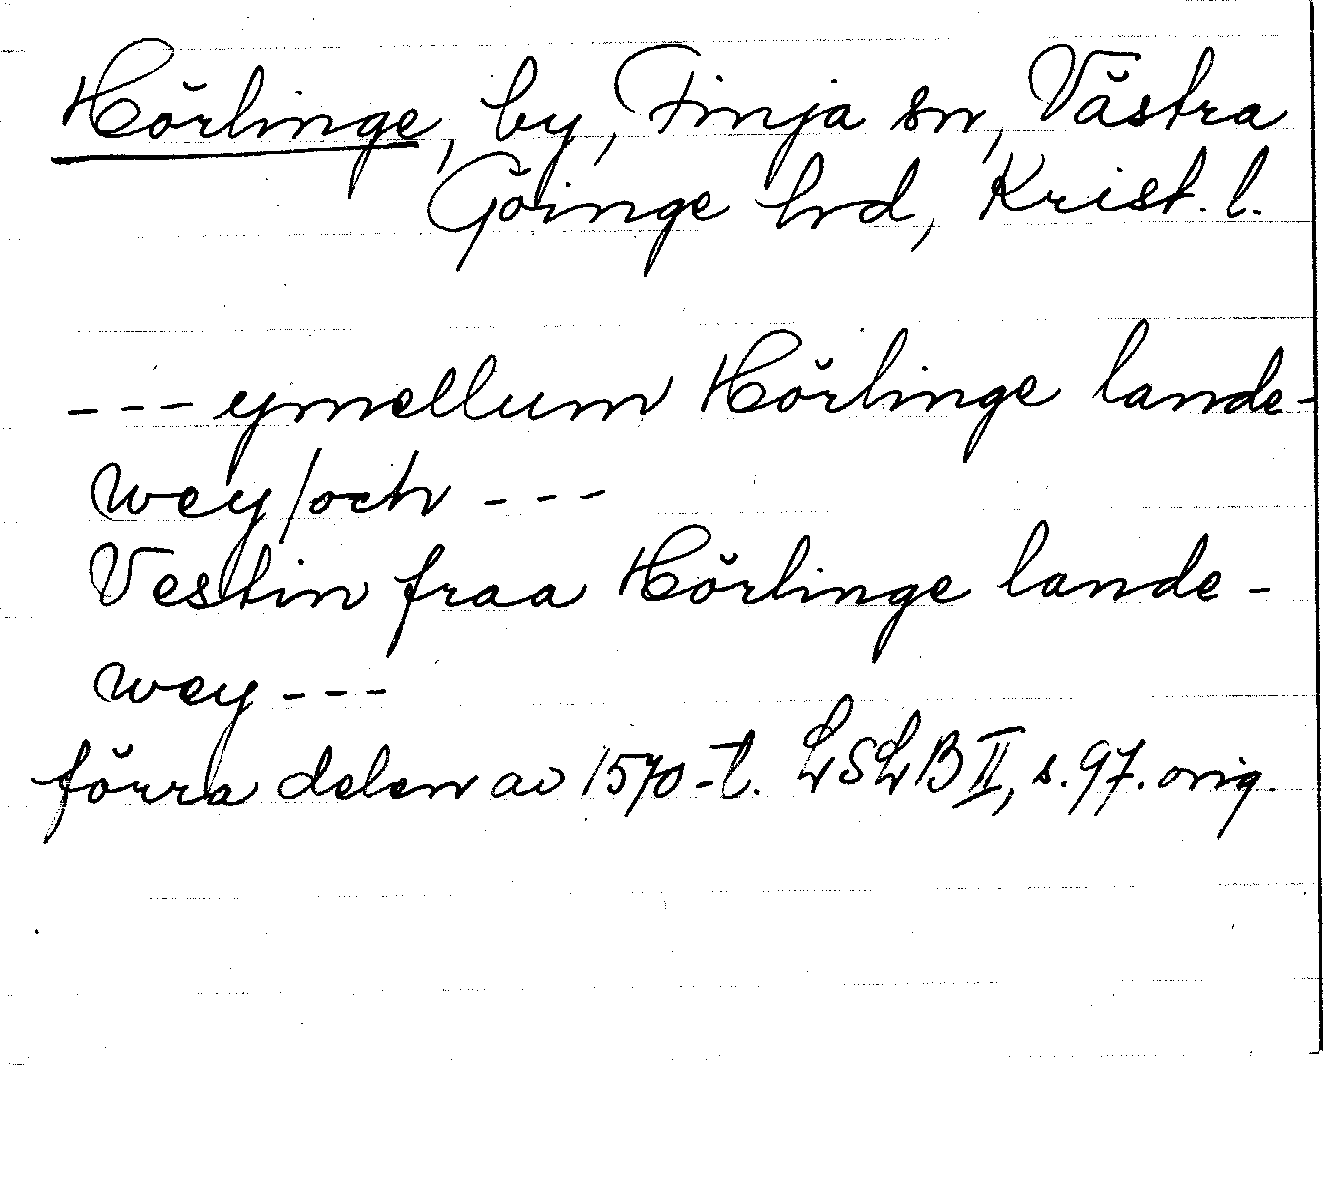 Hörlinge, by, Finja sn, Västra
Göinge hrd, Krist. l.
---ymellum Hörlinge lande-
wey/och ---
Vestin fraa Hörlinge lande-
wey---
förra delen av 1570-t. LSLB II, s.97. orig.